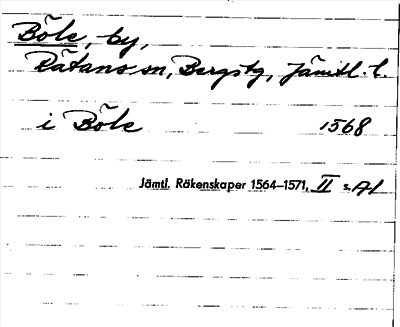 Böle, by,
Rätans sn, Bergs tg, Jämtl. l.
i Böle 1568
Jämtl. Räkenskaper 1564–1571, II s. A1